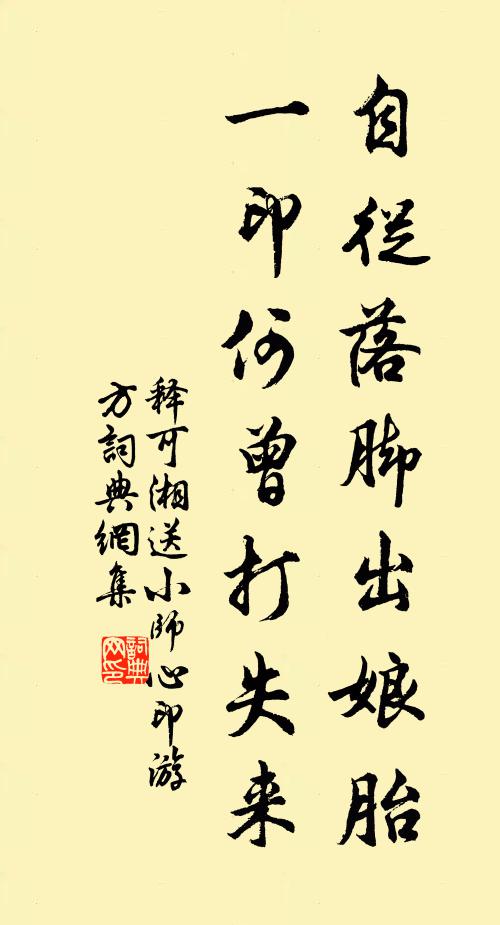 自從落脚出娘胎
一印何曾打失来
释可湘送小師心印游
方詞典網集
詞典网印